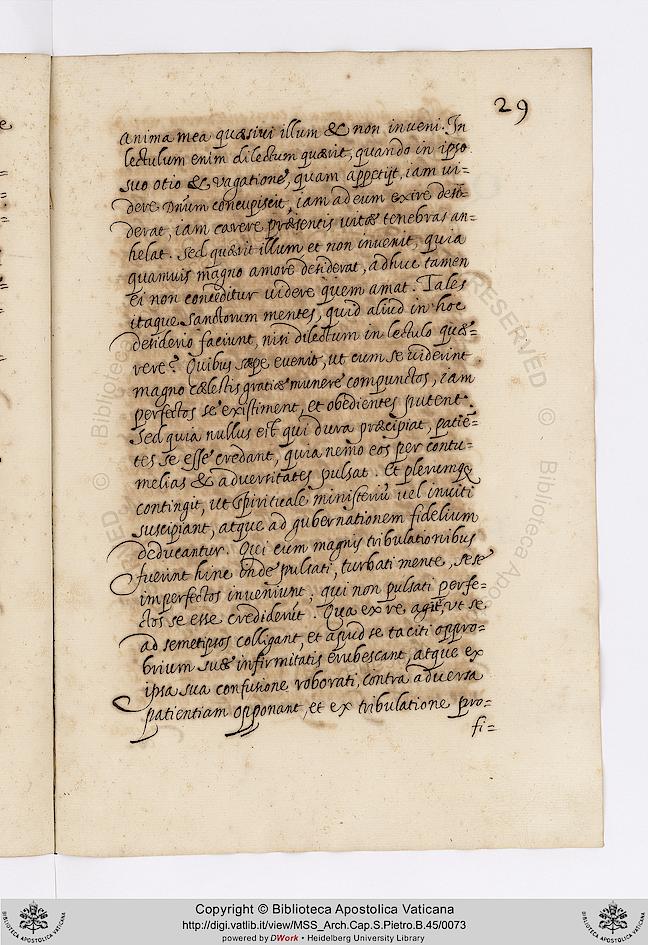 29
anima mea quæsivi illum & non inveni. In
lectulum enim dilectum quærit, quando in ipso
suo otio & vagatione, quam appetijt, iam vi=
dere Dnum concupiscit, iam ad eum exire desi=
derat, iam carere præsentis vitæ tenebras an=
helat. Sed quærit illum et non invenit, quia
quamuis magno amore desiderat, adhuc tamen
ei non conceditur videre quem amat. Tales
itaque sanctorum mentes, quid aliud in hoc
desiderio faciunt, nisi dilectum in lectulo quæ=
rere? Quibus sæpe evenit, ut cum se viderint
magno cælestis gratiæ munere compunctos, iam
perfectos se existiment, et obedientes putent.
Sed quia nullus est qui dura præcipiat, patiē=
tes se esse credant, quia nemo eos per contu=
melias & adversitates pulsat. Et plerumq
contingit, ut spirituale ministeriū vel inviti
suscipiant, atque ad gubernationem fidelium
deducantur. Qui cum magnis tribulationibus
fuerint hinc inde pulsati, turbati mente, sese
imperfectos inveniunt, qui non pulsati perfe=
ctos se esse crediderūt. Qua ex re agit, ut se
ad semetipsos colligant, et apud se taciti oppro=
brium suæ infirmitatis erubescant, atque ex
ipsa sua confusione roborati, contra adversa
patientiam opponant, et ex tribulatione pro=
fi=
© Biblioteca Apos
RESERVED © Biblioteca Apo
Copyright © Biblioteca Apostolica Vaticana
http://digi.vatlib.it/view/MSS_Arch.Cap.S.Pietro.B.45/0073
powered by DWork • Heidelberg University Library